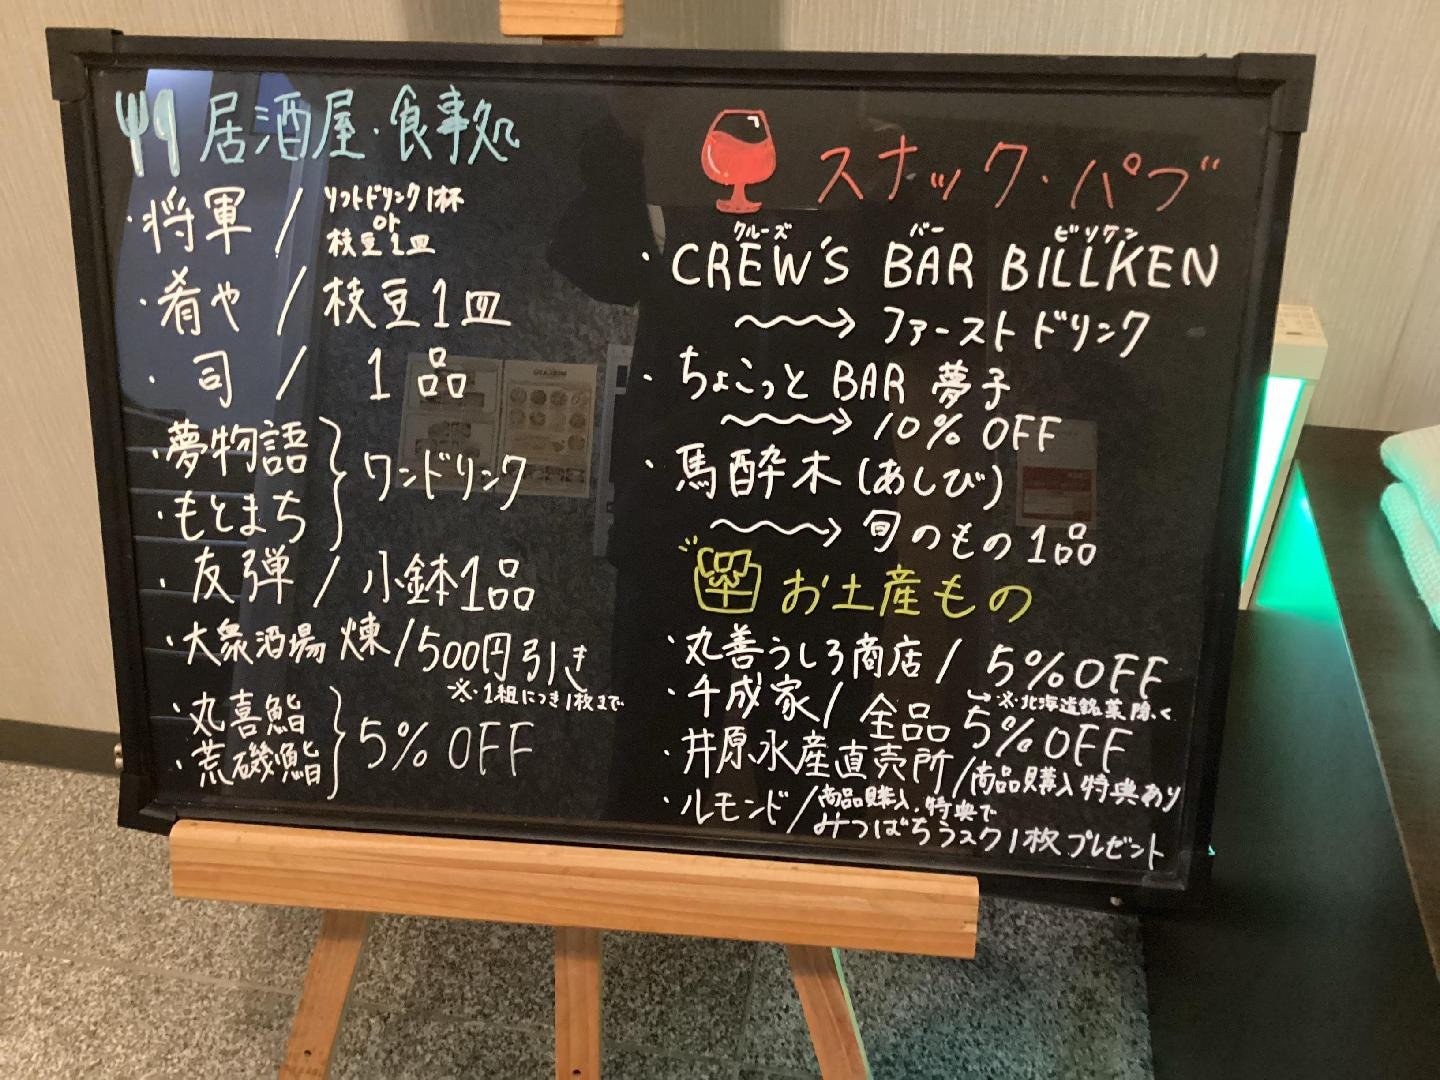 居酒屋・食事処
・将軍 / ソフトドリンク1杯
or
枝豆1皿
・肴や / 枝豆1皿
・司 / 1品
・夢物語
・もとまち } ワンドリンク
・友弾 / 小鉢1品
・大衆酒場 煉 / 500円引き
※・1組につき1枚まで
・丸喜鮨
・荒磯鮨 } 5% OFF
スナック・パブ
クルーズ バー ビリケン
・CREW'S BAR BILLKEN
→ ファーストドリンク
・ちょこっと BAR 夢子
→ 10% OFF
・馬酔木(あしび)
→ 旬のもの 1品
お土産もの
・丸善うしろ商店 / 5% OFF
↳ ※・北海道銘菓除く
・千成家 / 全品 5% OFF
・井原水産直売所 / 商品購入特典あり
・ルモンド / 商品購入特典で
みつばちラスク1枚プレゼント